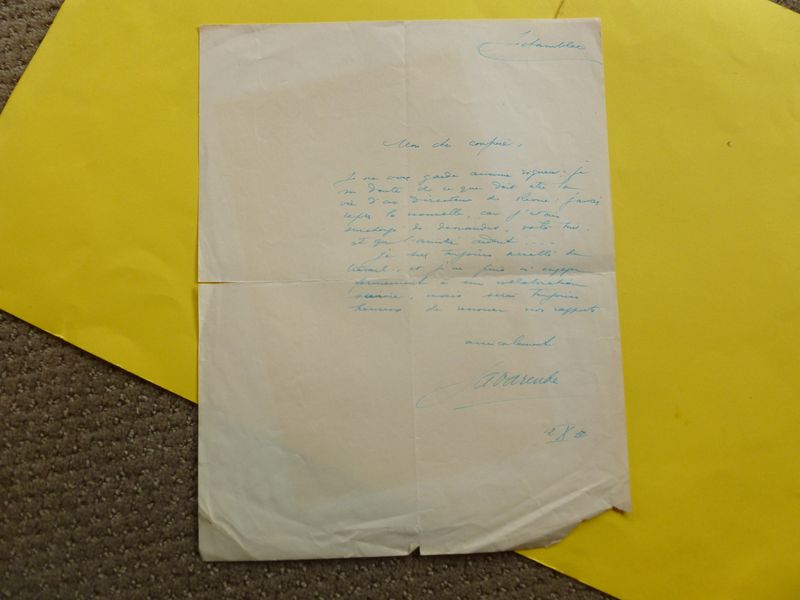 Mon cher confrère,
Je ne vous garde aucune rigueur : je
me doute de ce que doit être la
vie d'un Directeur de Revue. J'avais
repris la nouvelle, car j'étais
de demandes,
et que l'amitié ....
Je suis toujours de
travail, et je ne puis m'engager
fermement à une collaboration
suivie, mais serai toujours
heureux de renouer nos rapports
amicalement
La Varende
X